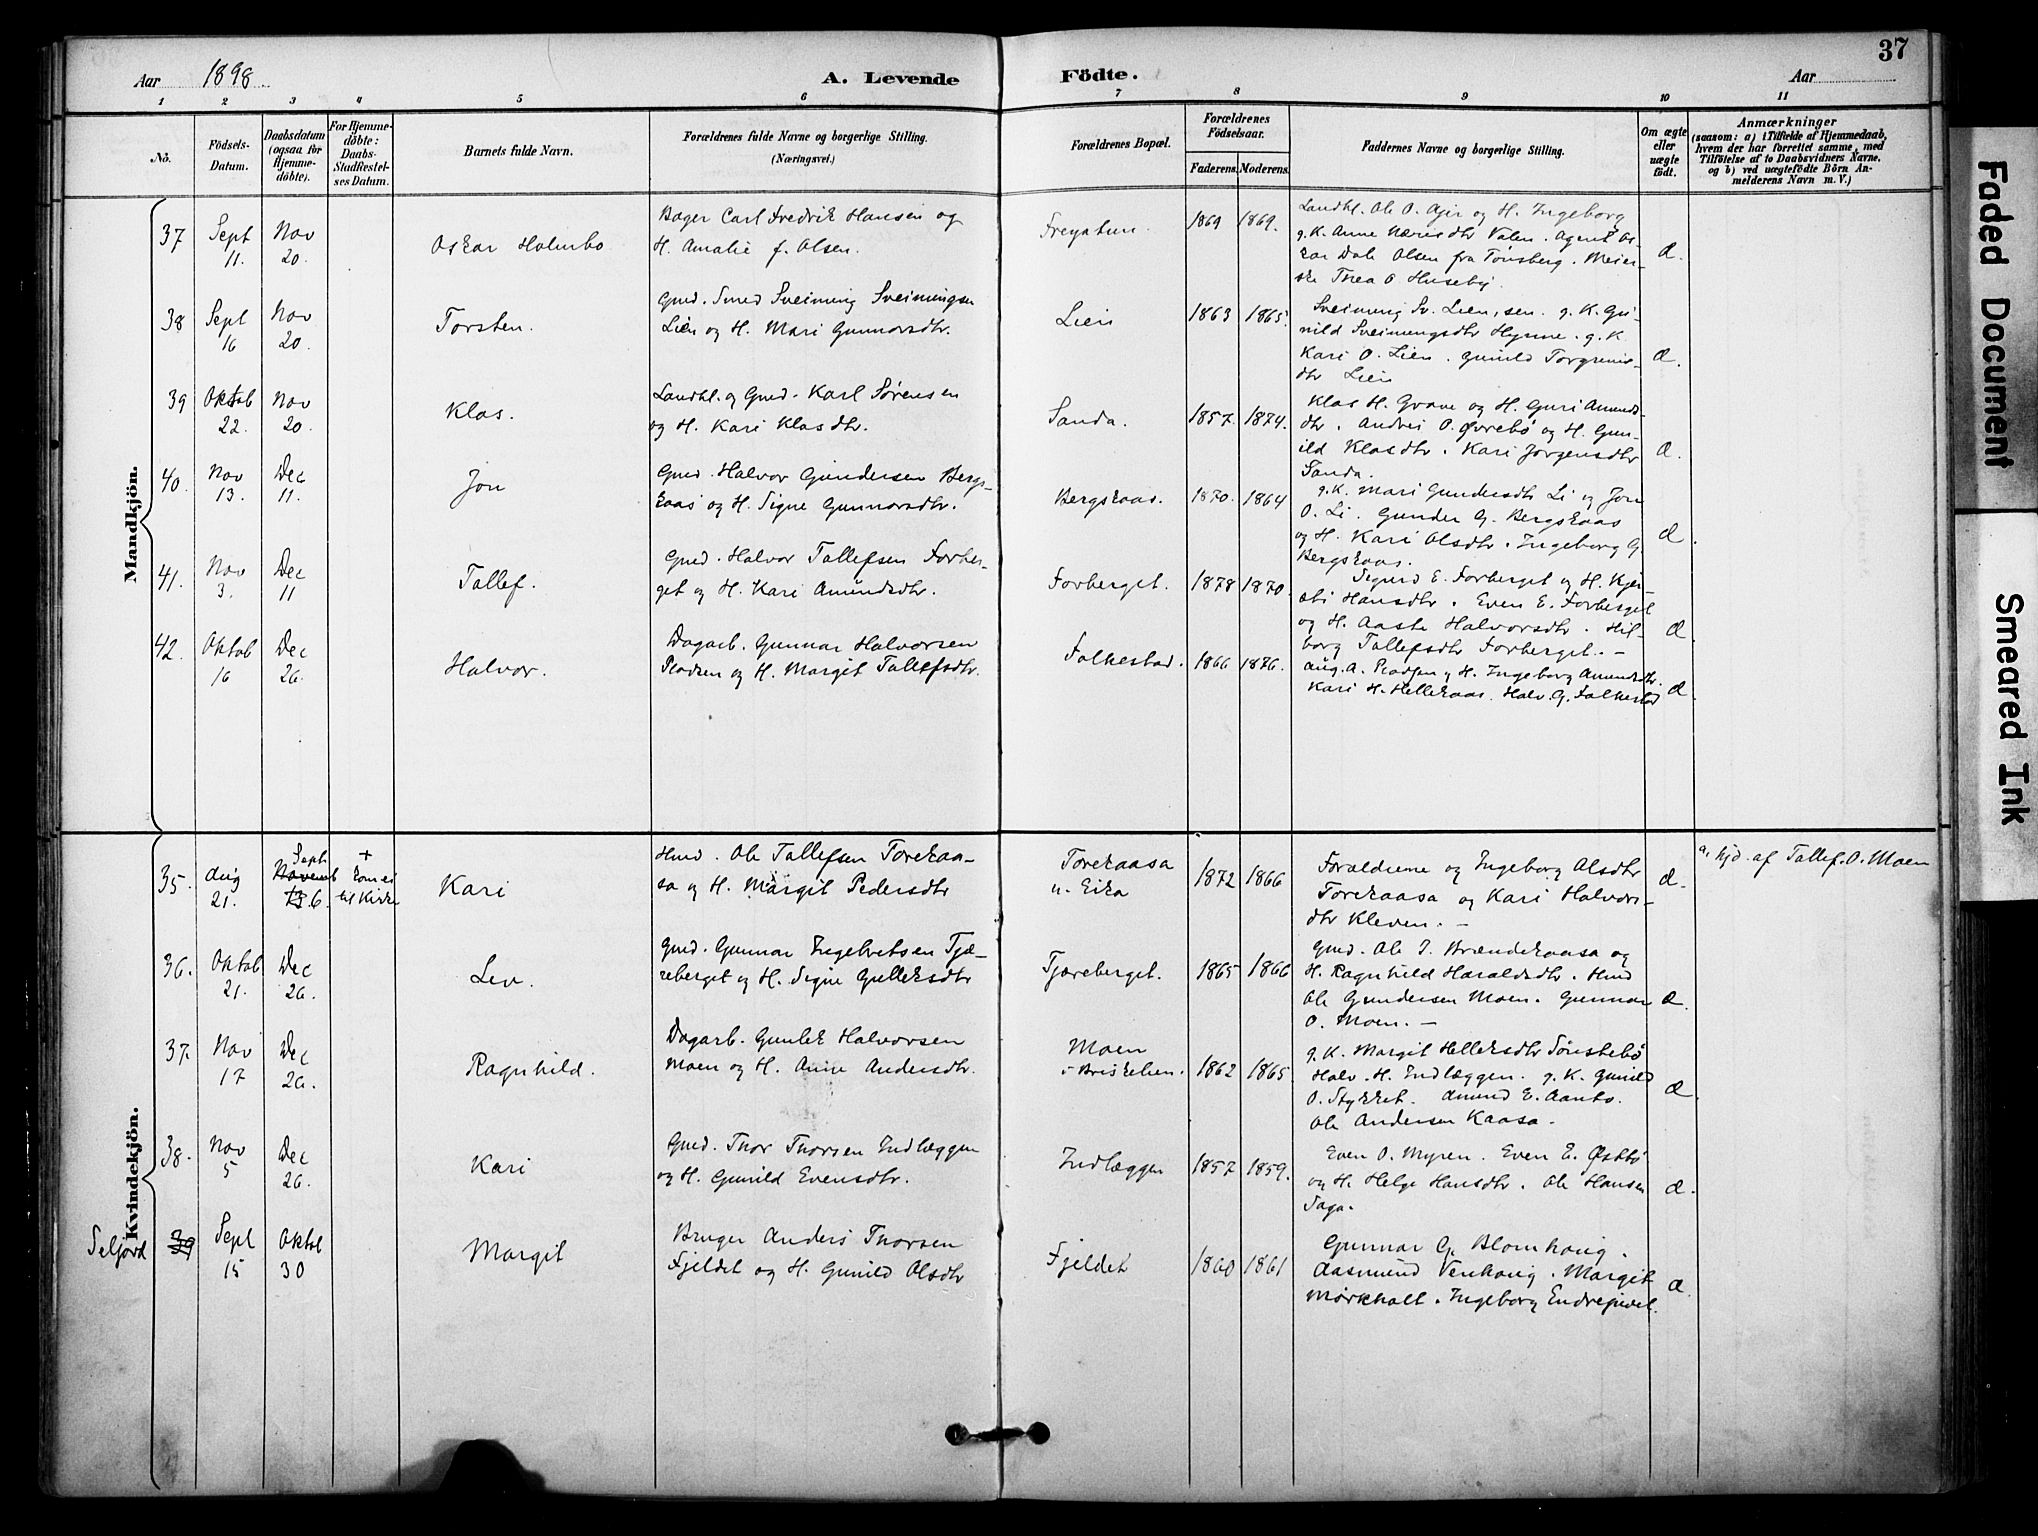 37
Aar 1898.
A. Levende
Födte.
Aar
1 2 3 4 5 6 7 8 9 10 11
No.
Födsels-Datum.
Daabsdatum (ogsaa for Hjemme-döbte).
For Hjemme-döbte: Daabs-Stadfæstel-ses Datum.
Barnets fulde Navn.
Forældrenes fulde Navne og borgerlige Stilling. (Næringsvei.)
Forældrenes Bopæl.
Forældrenes Födselsaar.
Faderens. Moderens.
Faddernes Navne og borgerlige Stilling.
Om ægte eller uægte födt.
Anmærkninger
(saasom: a) i Tilfælde af Hjemmedaab,
hvem der har forrettet samme, med
Tilföielse af to Daabsvidners Navne.
og b) ved uægtefödte Börn An-
melderens Navn m. V.)
Mandkjön.
37 Sept 11. Nov 20. Oskar Holmbo
Bager Carl Fredrik Hansen og
H. Amalie f. Olsen.
Freyatun. 1869 1869.
Landhl. Ole O. og H. Ingeborg
g. K. Anne dtr Valen. Agent Os-
kar Dale Olsen fra Tønsberg. Meier-
ske Thea O Huseby.
æ.
38 Sept 16 Nov 20. Torsten.
Gmd. Smed Sveinung Sveinungsen
Lien og H. Mari Gunnarsdtr.
Lien 1863 1865.
Sveinung Sv. Lien, sen. g. K. Gu-
nild Sveinungsdtr. g. K.
Kari O. Lien. Gunild Torgrims-
dtr Lien
æ.
39 Oktob 22. Nov 20. Klas.
Landhl. og Gmd. Karl Sørensen
og H. Kari Klasdtr.
Sanda. 1857. 1874.
Klas H. Grave og H. Guri Amunds-
dtr. Andres O. Øvrebø og H. Gun-
ild Klasdtr. Kari Jørgensdtr
Sanda.
æ.
40. Nov 13. Dec 11. Jon
Gmd. Halvor Gundersen Bergs-
kaas og H. Signe Gunnarsdtr.
Bergskaas. 1870. 1864
g.K. Mari Gundersdtr Li og Jon
O. Li. Gunder G. Bergskaas
og H. Kari Olsdtr. Ingeborg G.
Bergskaas.
æ.
41. Nov 3. Dec 11 Tallef.
Gmd. Halvor Tallefsen Forber-
get og H. Kari Amundsdtr.
Forberget. 1878 1870.
Sigurd E. Forberget og H. Kjer-
sti Hansdtr. Even E. Forberget
og H. Aaste Halvorsdtr. Hil-
borg Tallefsdtr Forberget. -
æ.
42. Oktob 16 Dec 26. Halvor.
Dagarb. Gunnar Halvorsen
Pladsen og H. Margit Tallefsdtr.
Folkestad. 1866 1876.
Aug. A. Pladsen og H. Ingeborg Amundsdtr.
Kari H. Hellekaas. Halv. G. Folkestad
æ.
Kvindekjön.
35. Aug 21. Sept 6. + kom ei til Kirke Kari
Hmd. Ole Tallefsen Torekaa-
sa og H. Margit Pedersdtr
Torekaasa u. Eika 1872 1866
Forældrene og Ingeborg Olsdtr
Torekaasa og Kari Halvors-
dtr Kleven. -
æ.
a, hjd. af Tallef. O. Moen
36. Oktob 21. Dec 26. Lev.
Gmd. Gunnar Ingebretsen Tjæ-
reberget og H. Signe Gulleksdtr
Tjæreberget. 1865 1866
Gmd. Ole J. Brændekaasa og
H. Ragnhild Haraldsdtr. Hmd
Ole Gundersen Moen. Gunnar
O. Moen. -
æ.
37. Nov 17 Dec 26. Ragnhild.
Dagarb. Gunlek Halvorsen
Moen og H. Anne Andersdtr.
Moen 1862 1865.
g. K. Margit Helleksdtr Sønstebø
Halv. H. Indlæggen. g. K. Gunild
O. Stykket. Amund E. Aanto.
Ole Andersen Kaasa.
æ.
38. Nov 5 Dec 26. Kari
Gmd. Thor Thorsen Indlæggen
og H. Gunild Evensdtr.
Indlæggen 1857 1859.
Even O. Myren. Even E. Østbø
og H. Helge Hansdtr. Ole Hansen
Saga.
æ.
Seljord 39 Sept 15 Oktob 30 Margit
Bruger Anders Thorsen
Fjeldet og H. Gunild Olsdtr
Fjeldet 1860 1861
Gunnar G. Blomhaug.
Aasmund Venhaug. Margit
Mørkholt. Ingeborg
æ.
Faded Document
Smeared Ink